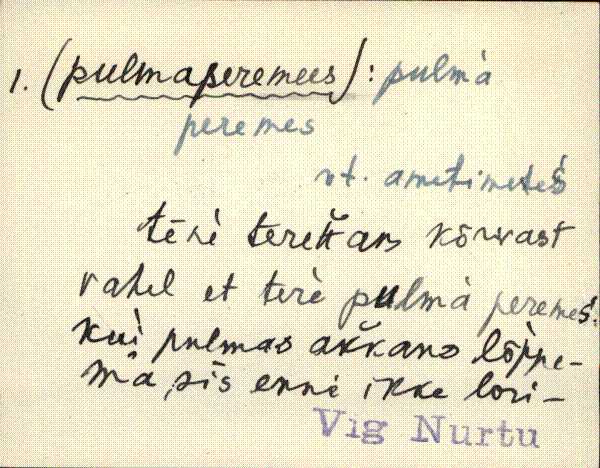 1. (pulmaperemees): pulmà
peremes
vt. ametimeteš
tēnè terek̆ans kõrvast
vahel et terè pulmà peremeš.
kuì pulmas ak̆kans lõppe-
mà, sīs ennè ikke lori-
Vig Nurtu